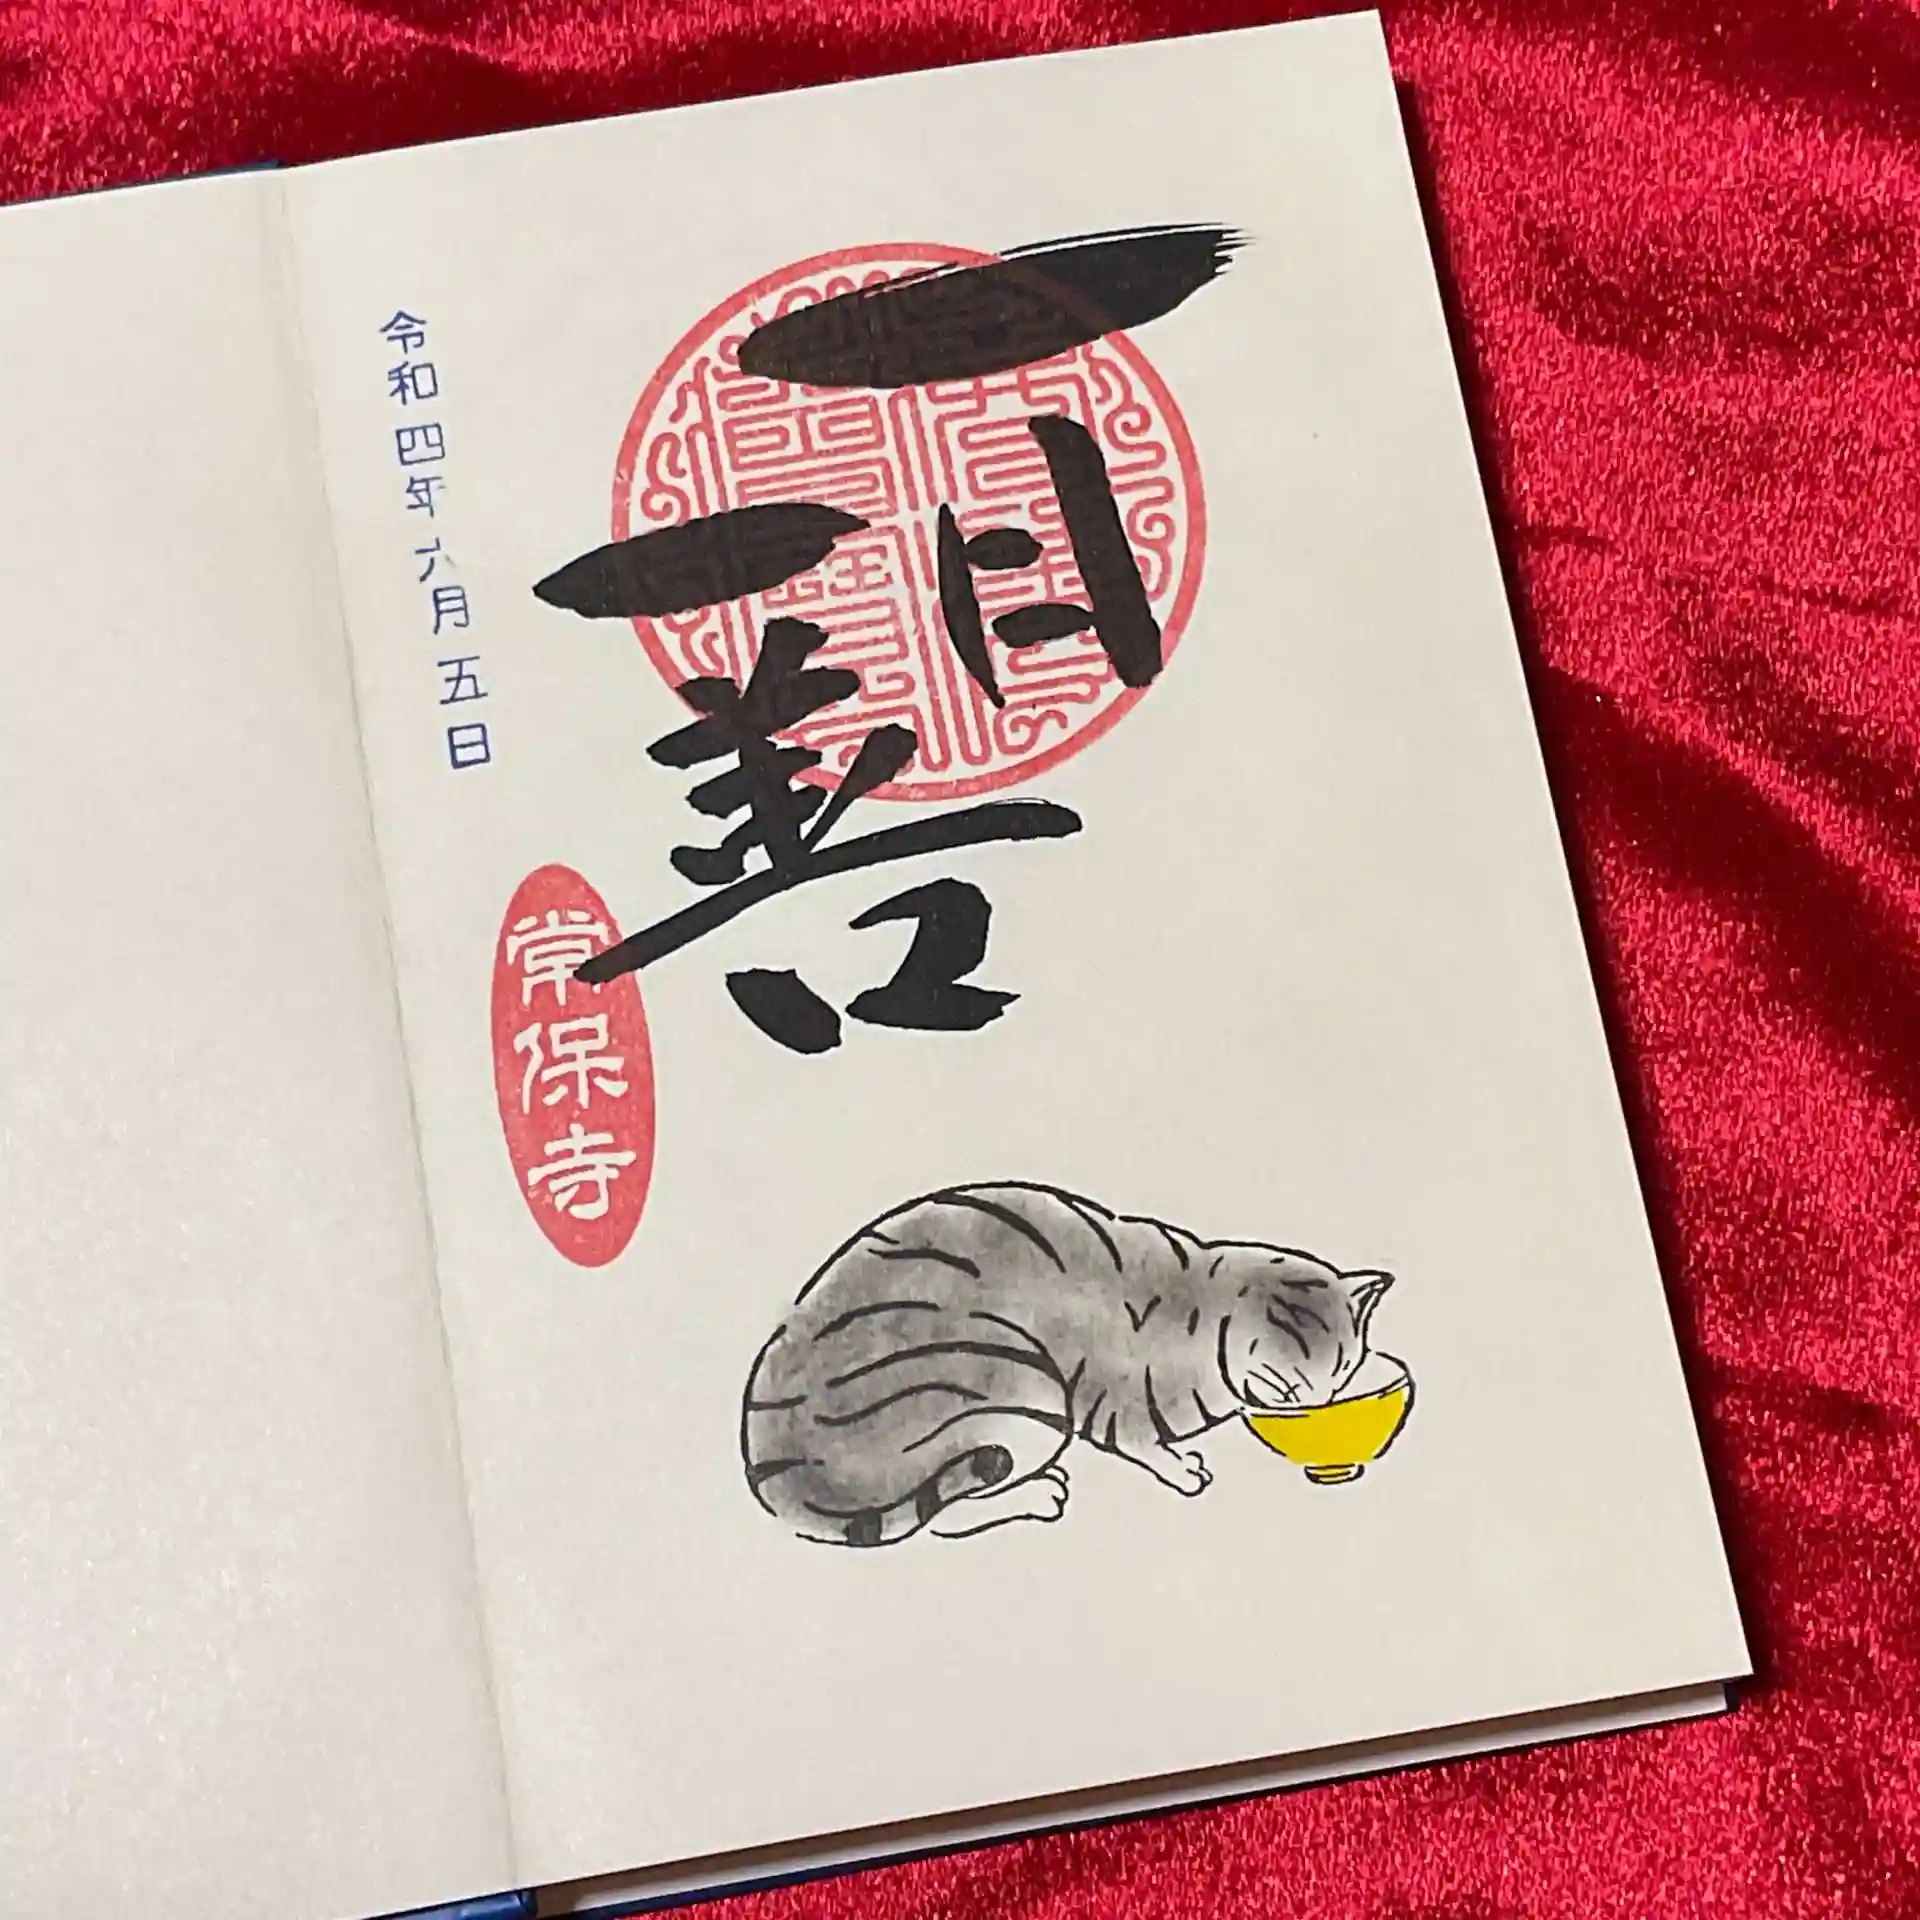 一日
一善
令和四年六月五日
常保寺